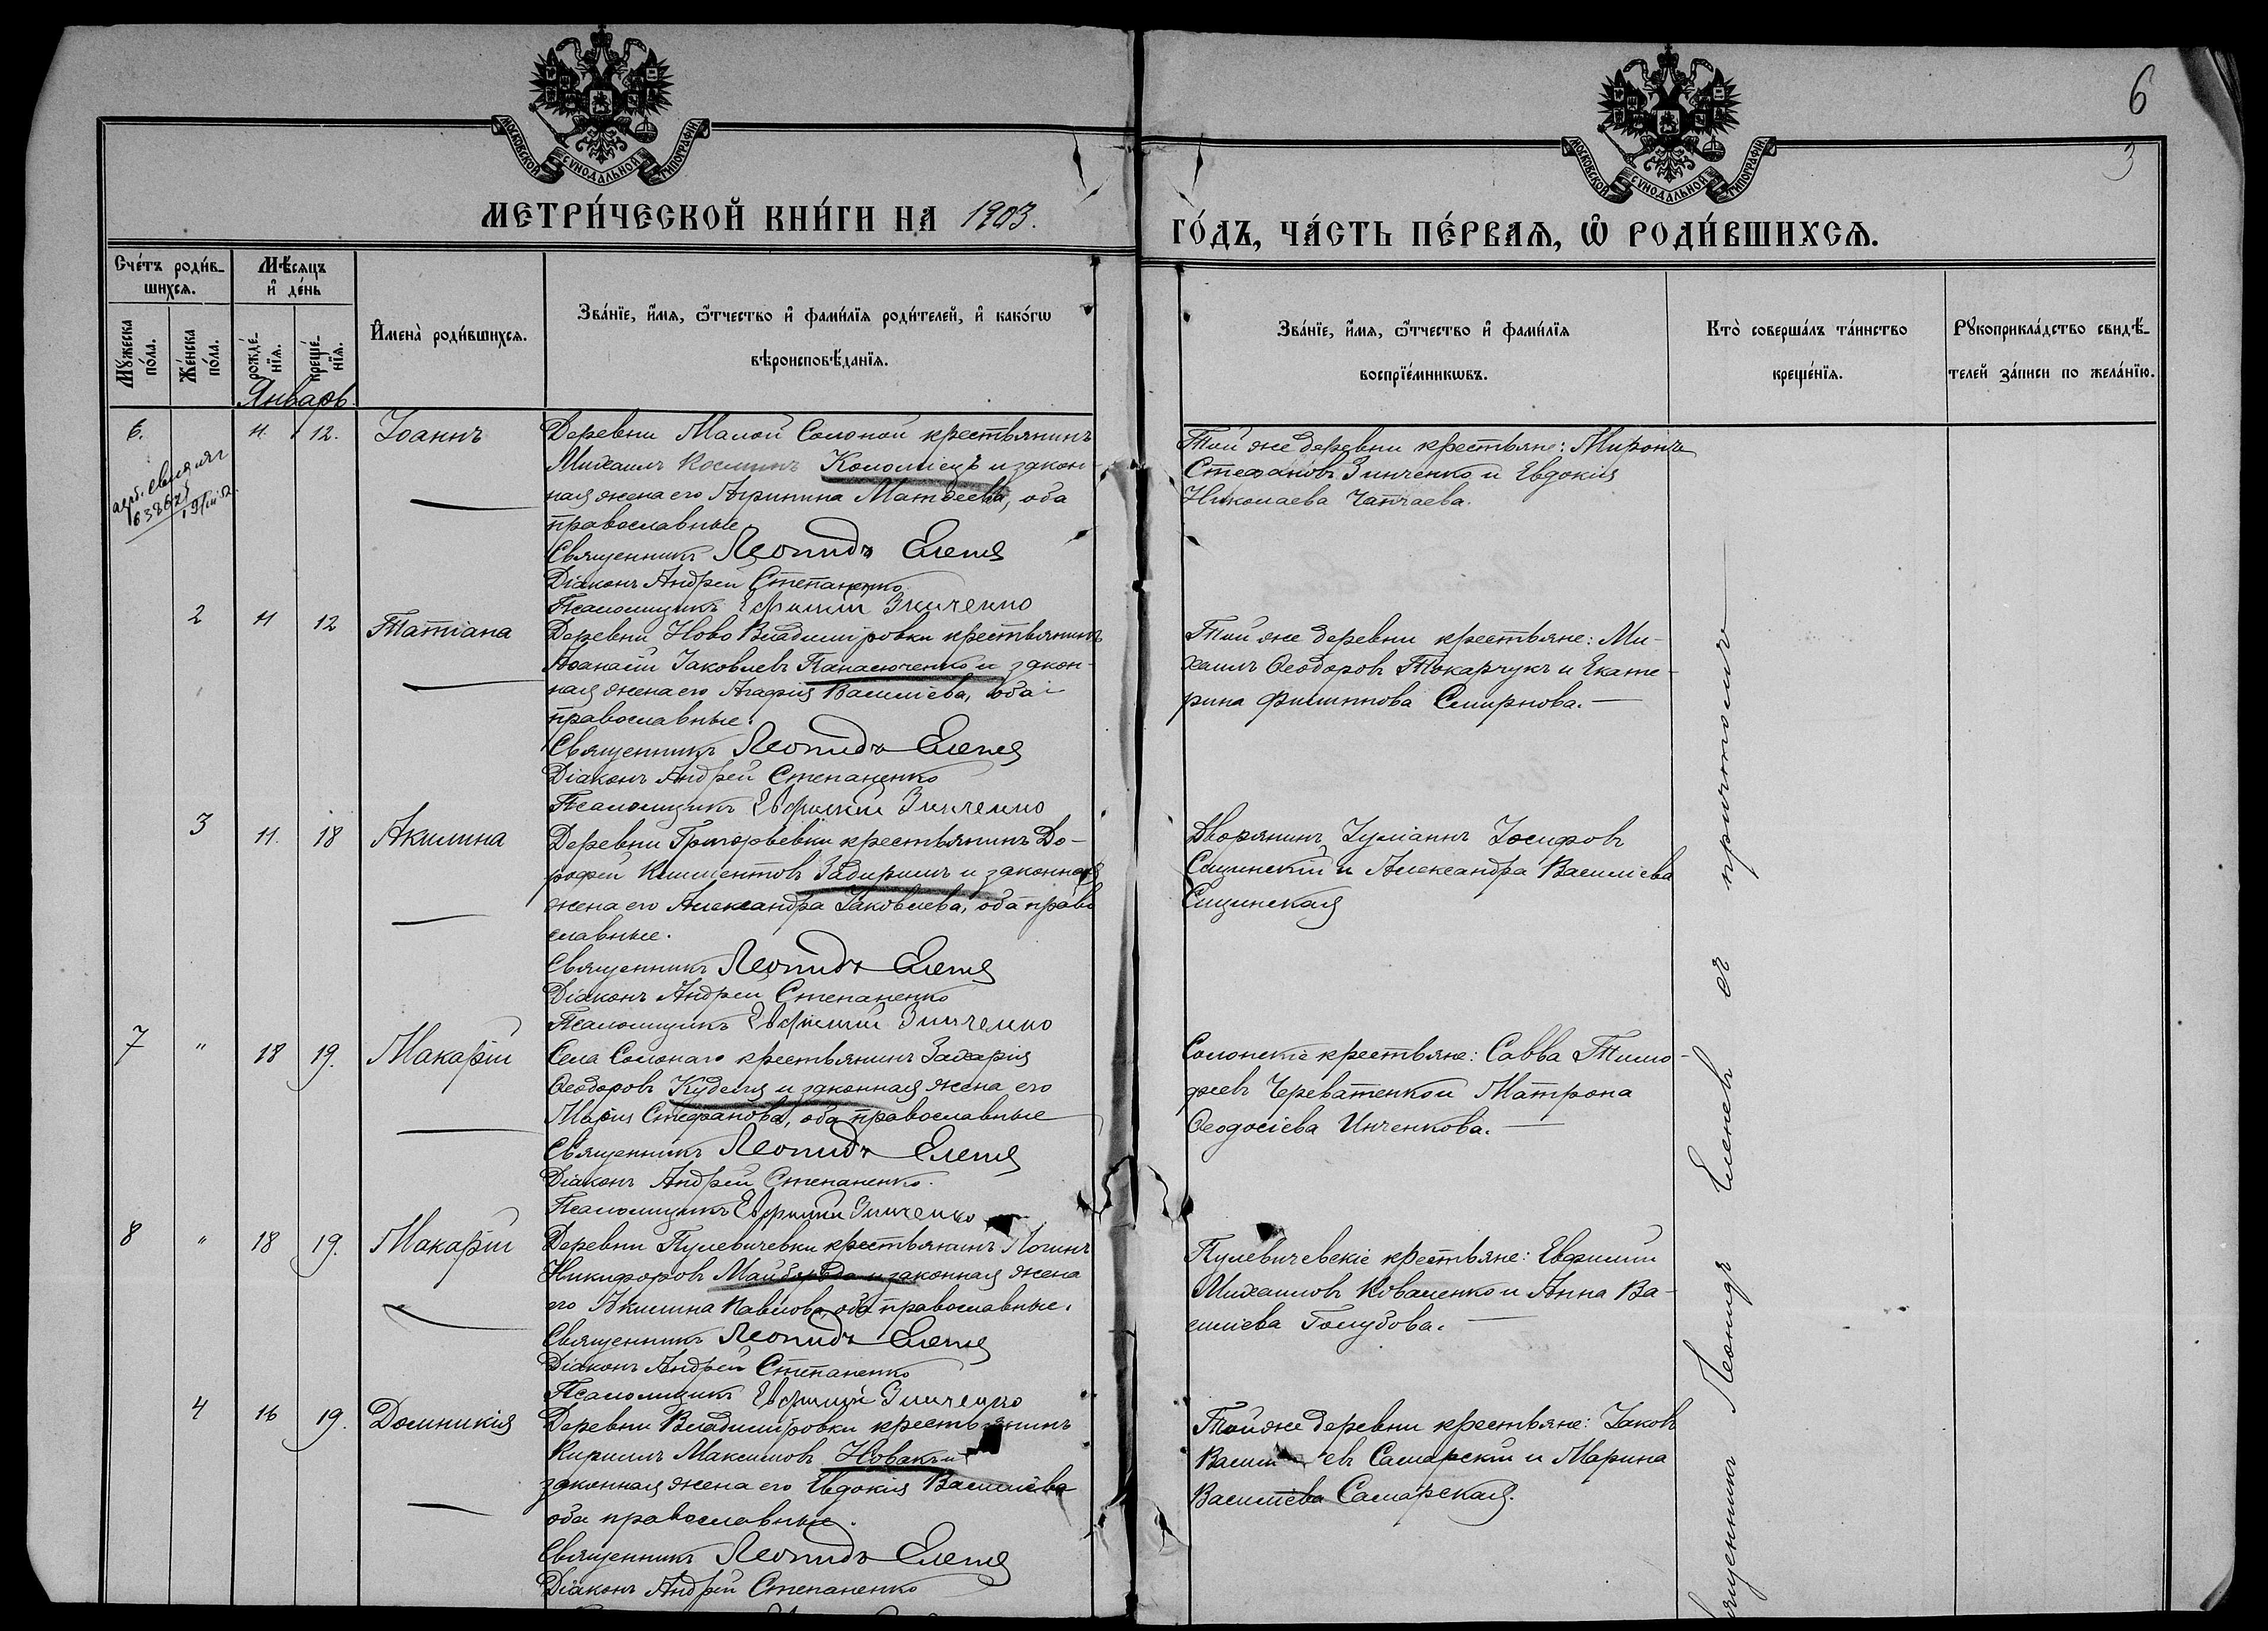 6
3
МОСКОВСКОЙ СѴНОДАЛЬНОЙ ТИПОГРАФІИ
МОСКОВСКОЙ СѴНОДАЛЬНОЙ ТИПОГРАФІИ
МЕТРИ́ЧЕСКОЙ КНИ́ГИ НА 1903.
ГО́ДЪ, ЧА́СТЬ ПЕ́РВАѦ, Ѡ҆ РОДИ́ВШИХСѦ.
Сче́тъ роди́в-
шихсѧ.
Мꙋ́жеска по́ла.
Же́нска по́ла.
Мѣ́сѧцъ
и҆ де́нь
рожде́-
нїѧ.
креще́-
нїѧ.
Январь.
И҆мена̀ роди́вшихсѧ.
Зва́нїе, и҆́мѧ, ѻ҆́тчество и҆ фами́лїѧ роди́телей, и҆ како́гѡ
вѣроисповѣ́данїѧ.
Зва́нїе, и҆́мѧ, ѻ҆́тчество и҆ фами́лїѧ
воспрїе́мникѡвъ.
Кто̀ соверша́лъ та́инство
креще́нїѧ.
Рꙋкоприкла́дство свидѣ́-
телей за́писи по жела́нїю.
6. 11. 12. Іоаннъ
Деревни Малой Солоной крестьянинъ
Михаилъ Косминъ Коломіецъ и закон-
ная жена его Агрипина Матвеева, оба
православные.
Священникъ Леонидъ Еленев
Діаконъ Андрей Степаненко
Псаломщикъ Евфимий Зинченко
Той же деревни крестьяне: Миронъ
Стефановъ Зинченко и Евдокія
Николаева Чапчаева.
2 11 12 Татіана
Деревни Ново Владиміровки крестьянинъ
Аѳанасій Іаковлевъ Панасюченко и закон-
ная жена его Агафія Василіева, оба
православные.
Священникъ Леонидъ Еленев
Діаконъ Андрей Степаненко
Псаломщикъ Евфимий Зинченко
Той же деревни крестьяне: Ми-
хаилъ Ѳеодоровъ Токарчукъ и Екате-
рина Филиппова Смирнова.
3 11. 18 Акилина
Деревни Григорьевки крестьянинъ До-
рофей Климентовъ и законная
жена его Александра Іаковлева, оба право
славные.
Священникъ Леонидъ Еленев
Діаконъ Андрей Степаненко
Псаломщикъ Евфимий Зинченко
Дворянинъ Іуліанъ Іосифовъ
Сицинскій и Александра Василіева
Сицинская
7 " 18 19. Макарій
Села Солонаго крестьянинъ Захарія
Ѳеодоровъ Куделя и законная жена его
Марія Стефанова, оба православные
Священникъ Леонидъ Еленев
Діаконъ Андрей Степаненко.
Псаломщикъ Евфимий Зинченко
Солонскіе крестьяне: Савва Тимо-
феевъ Череватенко и Матрона
Ѳеодосіева Инченкова.
8 " 18 19. Макарій
Деревни Пулевичевки крестьянинъ Логинъ
Никифоровъ Майборода и законная жена
его Акилина Павлова, оба православные.
Священникъ Леонидъ Еленев
Діаконъ Андрей Степаненко
Псаломщикъ Евфимий Зинченко
Пулевичевскіе крестьяне: Евфимій
Михаиловъ Коваленко и Анна Ва-
силіева Голубова.
4 16 19. Домникія
Деревни Владиміровки крестьянинъ
Кириллъ Максимовъ Новакъ и
законная жена его Евдокія Василіева
оба православные.
Священникъ Леонидъ Еленев
Діаконъ Андрей Степаненко
Той же деревни крестьяне: Іаковъ
Васильевъ Самарскій и Марина
Василіева Самарская.
Священникъ Леонидъ Еленевъ съ причтомъ